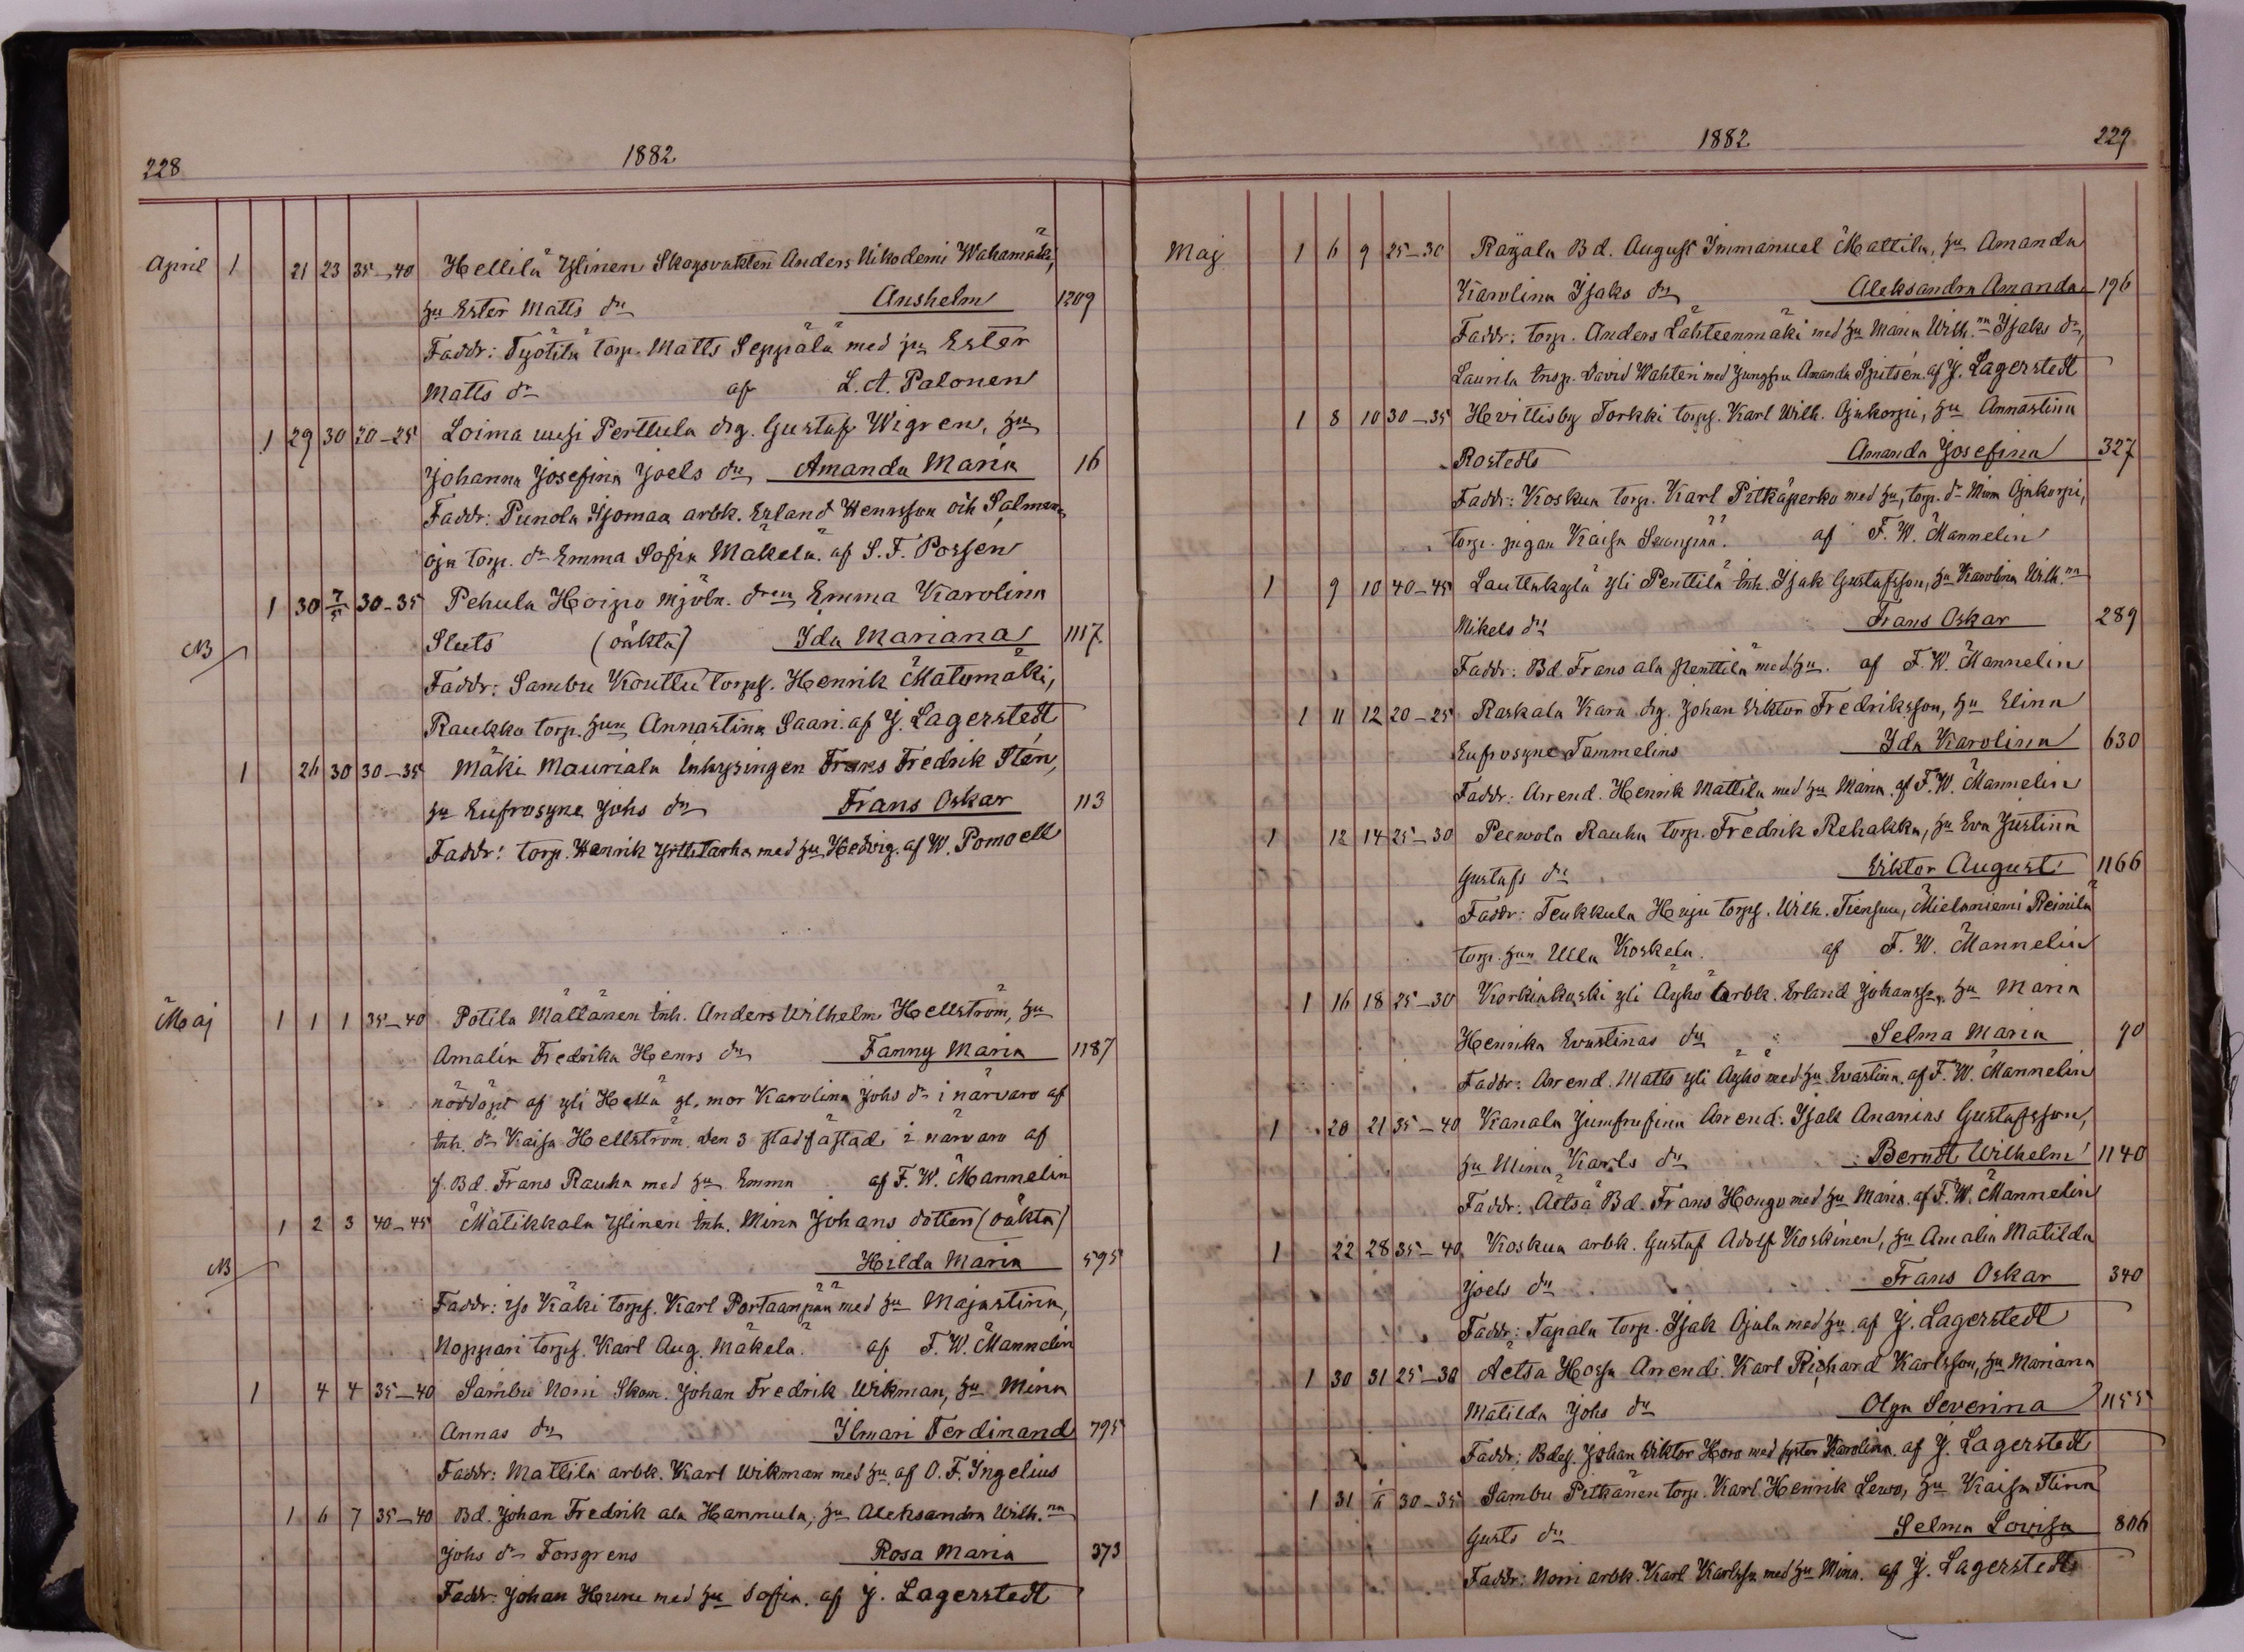 228
1882
April 1 21 23 35–40 Hellilä Ylinen Skogsvakten Anders Nikodemi Wahamäki,
hu Ester Matts dr Anshelm 1209
Faddr: Työtilä torp. Matts Seppälä med hu Ester
Matts dr af L. A. Palonen
1 29 30 20–25 Loima uusi Perttula drg. Gustaf Wigren, hu
Johanna Josefina Joels dr Amanda Maria 16
Faddr: Punola Ijomaa arbk. Erland Henrsson och Salmen
oja torp. dr Emma Sofia Mäkelä. af S. F. Possen
1 30 7/5 30–35 Pehula Hoipo mjöln. dren Emma Karolina
NB Sluts (oäkta) Ida Mariana 1117.
Faddr: Sambu Kouttu torpf. Henrik Matomäki,
Raukko torp. hun Annastina Saari. af J. Lagerstedt
1 26 30 30–35 Mäki Mauriala Inhysingen Frans Fredrik Sten,
hu Eufrosyne Johs dr Frans Oskar 113
Faddr: torp. Henrik Yrttitarha med hu Hedvig. af W. Pomoell
Maj 1 1 1 35–40 Potila Mältänen Inh. Anders Wilhelm Hellström, hu
Amalia Fredrika Henrs dr Fanny Maria 1187
nöddöpt af yli Hellä gl. mor Karolina Johs dr i närvaro af
Inh. dr Kaisa Hellström. den 3 stadfästad i närvaro af
f. Bd. Frans Rauha med hu Emma af F. W. Mannelin
1 2 3 40–45 Mätikkala Ylinen Inh. Mina Johans dotten (oäkta)
NB Hilda Maria 595
Faddr: iso Käki torpf. Karl Portaanpää med hu Majastina,
Noppari torpf. Karl Aug. Mäkelä. af F. W. Mannelin
1 4 4 35–40 Sambu Noni Skom. Johan Fredrik Wikman, hu Mina
Annas dr Ilmari Ferdinand 795
Faddr: Mattila arbk. Karl Wikman med hu af O. F. Ingelius
1 6 7 35–40 Bd. Johan Fredrik ala Hannula, hu Aleksandra Wilh.na
Johs dr Forsgrens Rosa Maria 373
Faddr. Johan Hurne med hu Sofia. af J. Lagerstedt
1882
229
Maj 1 6 9 25–30 Räyälä Bd. August Immanuel Mattila, hu Amanda
Karolina Isaks dr Aleksandra Amanda 196
Faddr: torp. Anders Lähteenmäki med hu Maria Wilh.na Isaks dr,
Laurila Insp. David Wahten med Jungfru Amanda Spitsén. af J. Lagerstedt
1 8 10 30–35 Hevittisby Torkki torpf. Karl Wilh. Ojakorpi, hu Annastina
Rostedts Amanda Josefina 327
Faddr: Koskua torp. Karl Pitkäperko med hu, torp. dr Mina Ojakorpi,
torp. pigan Kaisa Seunpää. af F. W. Mannelin
1 9 10 40–45 Lauttakylä yli Penttilä Inh. Isak Gustafsson, hu Karolina Wilh.na
Mikels dr Frans Oskar 289
Faddr: Bd. Frans ala Penttilä med hu. af F. W. Mannelin
1 11 12 20–25 Raskala Kara drg. Johan Viktor Fredriksson, hu Elina
Eufrosyne Tammelins Ida Karolina 630
Faddr: Arrend. Henrik Mattila med hu Maria. af F. W. Mannelin
1 12 14 25–30 Peewola Rauha torp. Fredrik Rehakka, hu Eva Justina
Gustafs dr Viktor August 1166
Faddr: Teukkula Huju torpf. Wilh. Tiensuu, Mielaniemi Reinilä
torp. hun Ulla Koskela. af F. W. Mannelin
1 16 18 25–30 Korkiakoski yli Äyhö arbk. Erland Johansson, hu Maria
Henrika Evastinas dr Selma Maria 90
Faddr: Arrend. Matts yli Äyhö med hu Evastina. af F. W. Mannelin
1 20 21 35–40 Kanala Jumfrufina Arrend. Isak Ananias Gustafsson,
hu Mina Karls dr Berndt Wilhelm 1140
Faddr: Aetsä Bd. Frans Hongo med hu Maria. af F. W. Mannelin
1 22 28 35–40 Koskua arbk. Gustaf Adolf Koskinen, hu Amalia Matilda
Joels dr Frans Oskar 340
Faddr: Tapala torp. Isak Ojala med hu. af J. Lagerstedt
1 30 31 25–30 Aetsä Hossa Arrend. Karl Richard Karlsson, hu Mariana
Matilda Johs dr Olga Severina 1155
Faddr: Bdsf. Johan Viktor Horo med syster Karolina. af J. Lagerstedt
1 31 1/6 30–35 Sambu Pitkänen torp. Karl Henrik Lewo, hu Kaisa Stina
Gusts dr Selma Lovisa 806
Faddr: Noni arbk. Karl Karlsson med hu Mina. af J. Lagerstedt